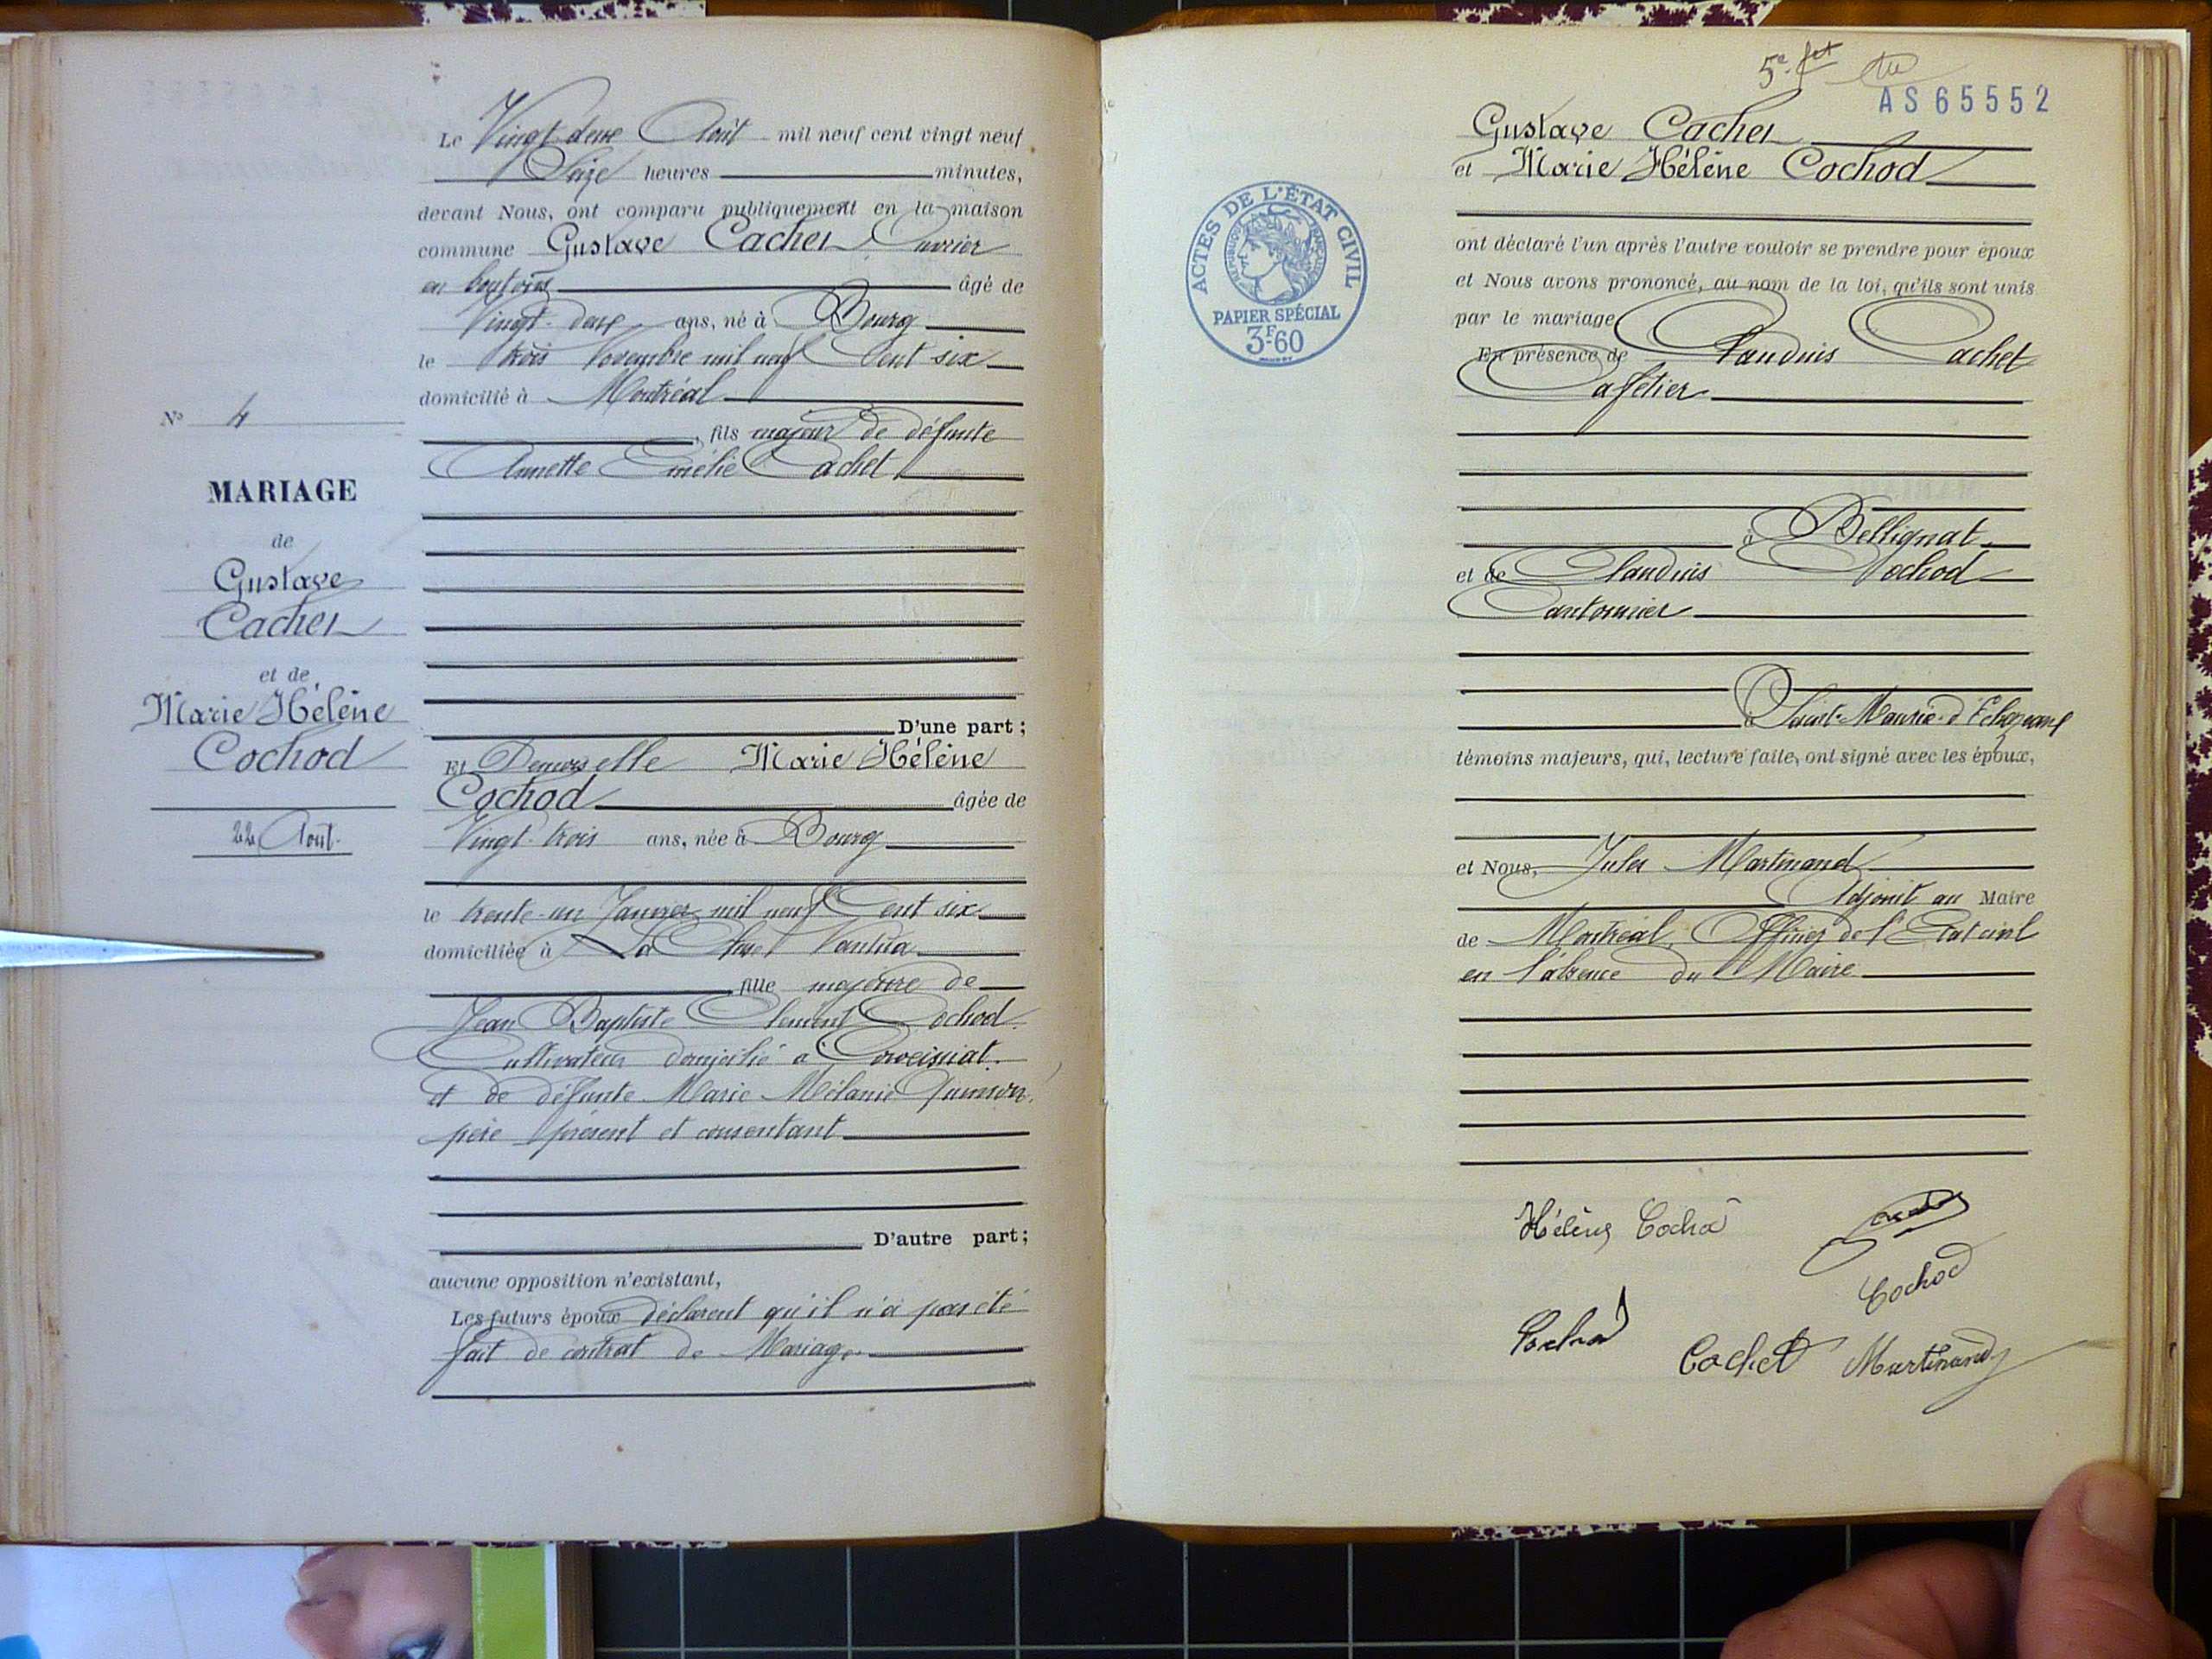 Le Vingt deux Août mil neuf cent vingt neuf
Seize heures minutes,
devant Nous, ont comparu publiquement en la maison
commune Gustave Cachet Ouvrier
en boutons âgé de
Vingt-deux ans, né à Bourg
le trois Novembre mil neuf Cent six
domicilié à Montréal
fils majeur de défunte
Annette Emélie Cachet
N° 4
MARIAGE
de
Gustave
Cachet
et de
Marie Hélène
Cochod
22 Aout.
D'une part;
Et Demoiselle Marie Hélène
Cochod âgée de
Vingt-trois ans, née à Bourg
le trente-un Janvier mil neuf Cent six
domiciliée à La Cluse Nantua
fille majeure de
Jean Baptiste Clément Cochod.
Cultivateur domicilié à Corveissiat.
et de défunte Marie Mélanie
père présent et consentant
D'autre part;
aucune opposition n'existant,
Les futurs époux déclarent qu'il n'a pas été
fait de contrat de Mariage.
5e
AS65552
Gustave Cachet
et Marie Hélène Cochod
ont déclaré l'un après l'autre vouloir se prendre pour époux
et Nous avons prononcé, au nom de la loi, qu'ils sont unis
par le mariage
En présence de Claudius Cachet
Cafetier
à Bellignat
et de Claudius Cochod
Cantonnier
à Saint-Maurice-d'Echazeaux
témoins majeurs, qui, lecture faite, ont signé avec les époux,
et Nous, Jules Martinand
Adjoint au Maire
de Montréal, Officier de l'Etat civil
en l'absence du Maire
ACTES DE L'ÉTAT CIVIL
RÉPUBLIQUE FRANÇAISE
PAPIER SPÉCIAL
3F60
Hélène Cochod
Cochod
Cochod
Cachet Martinand